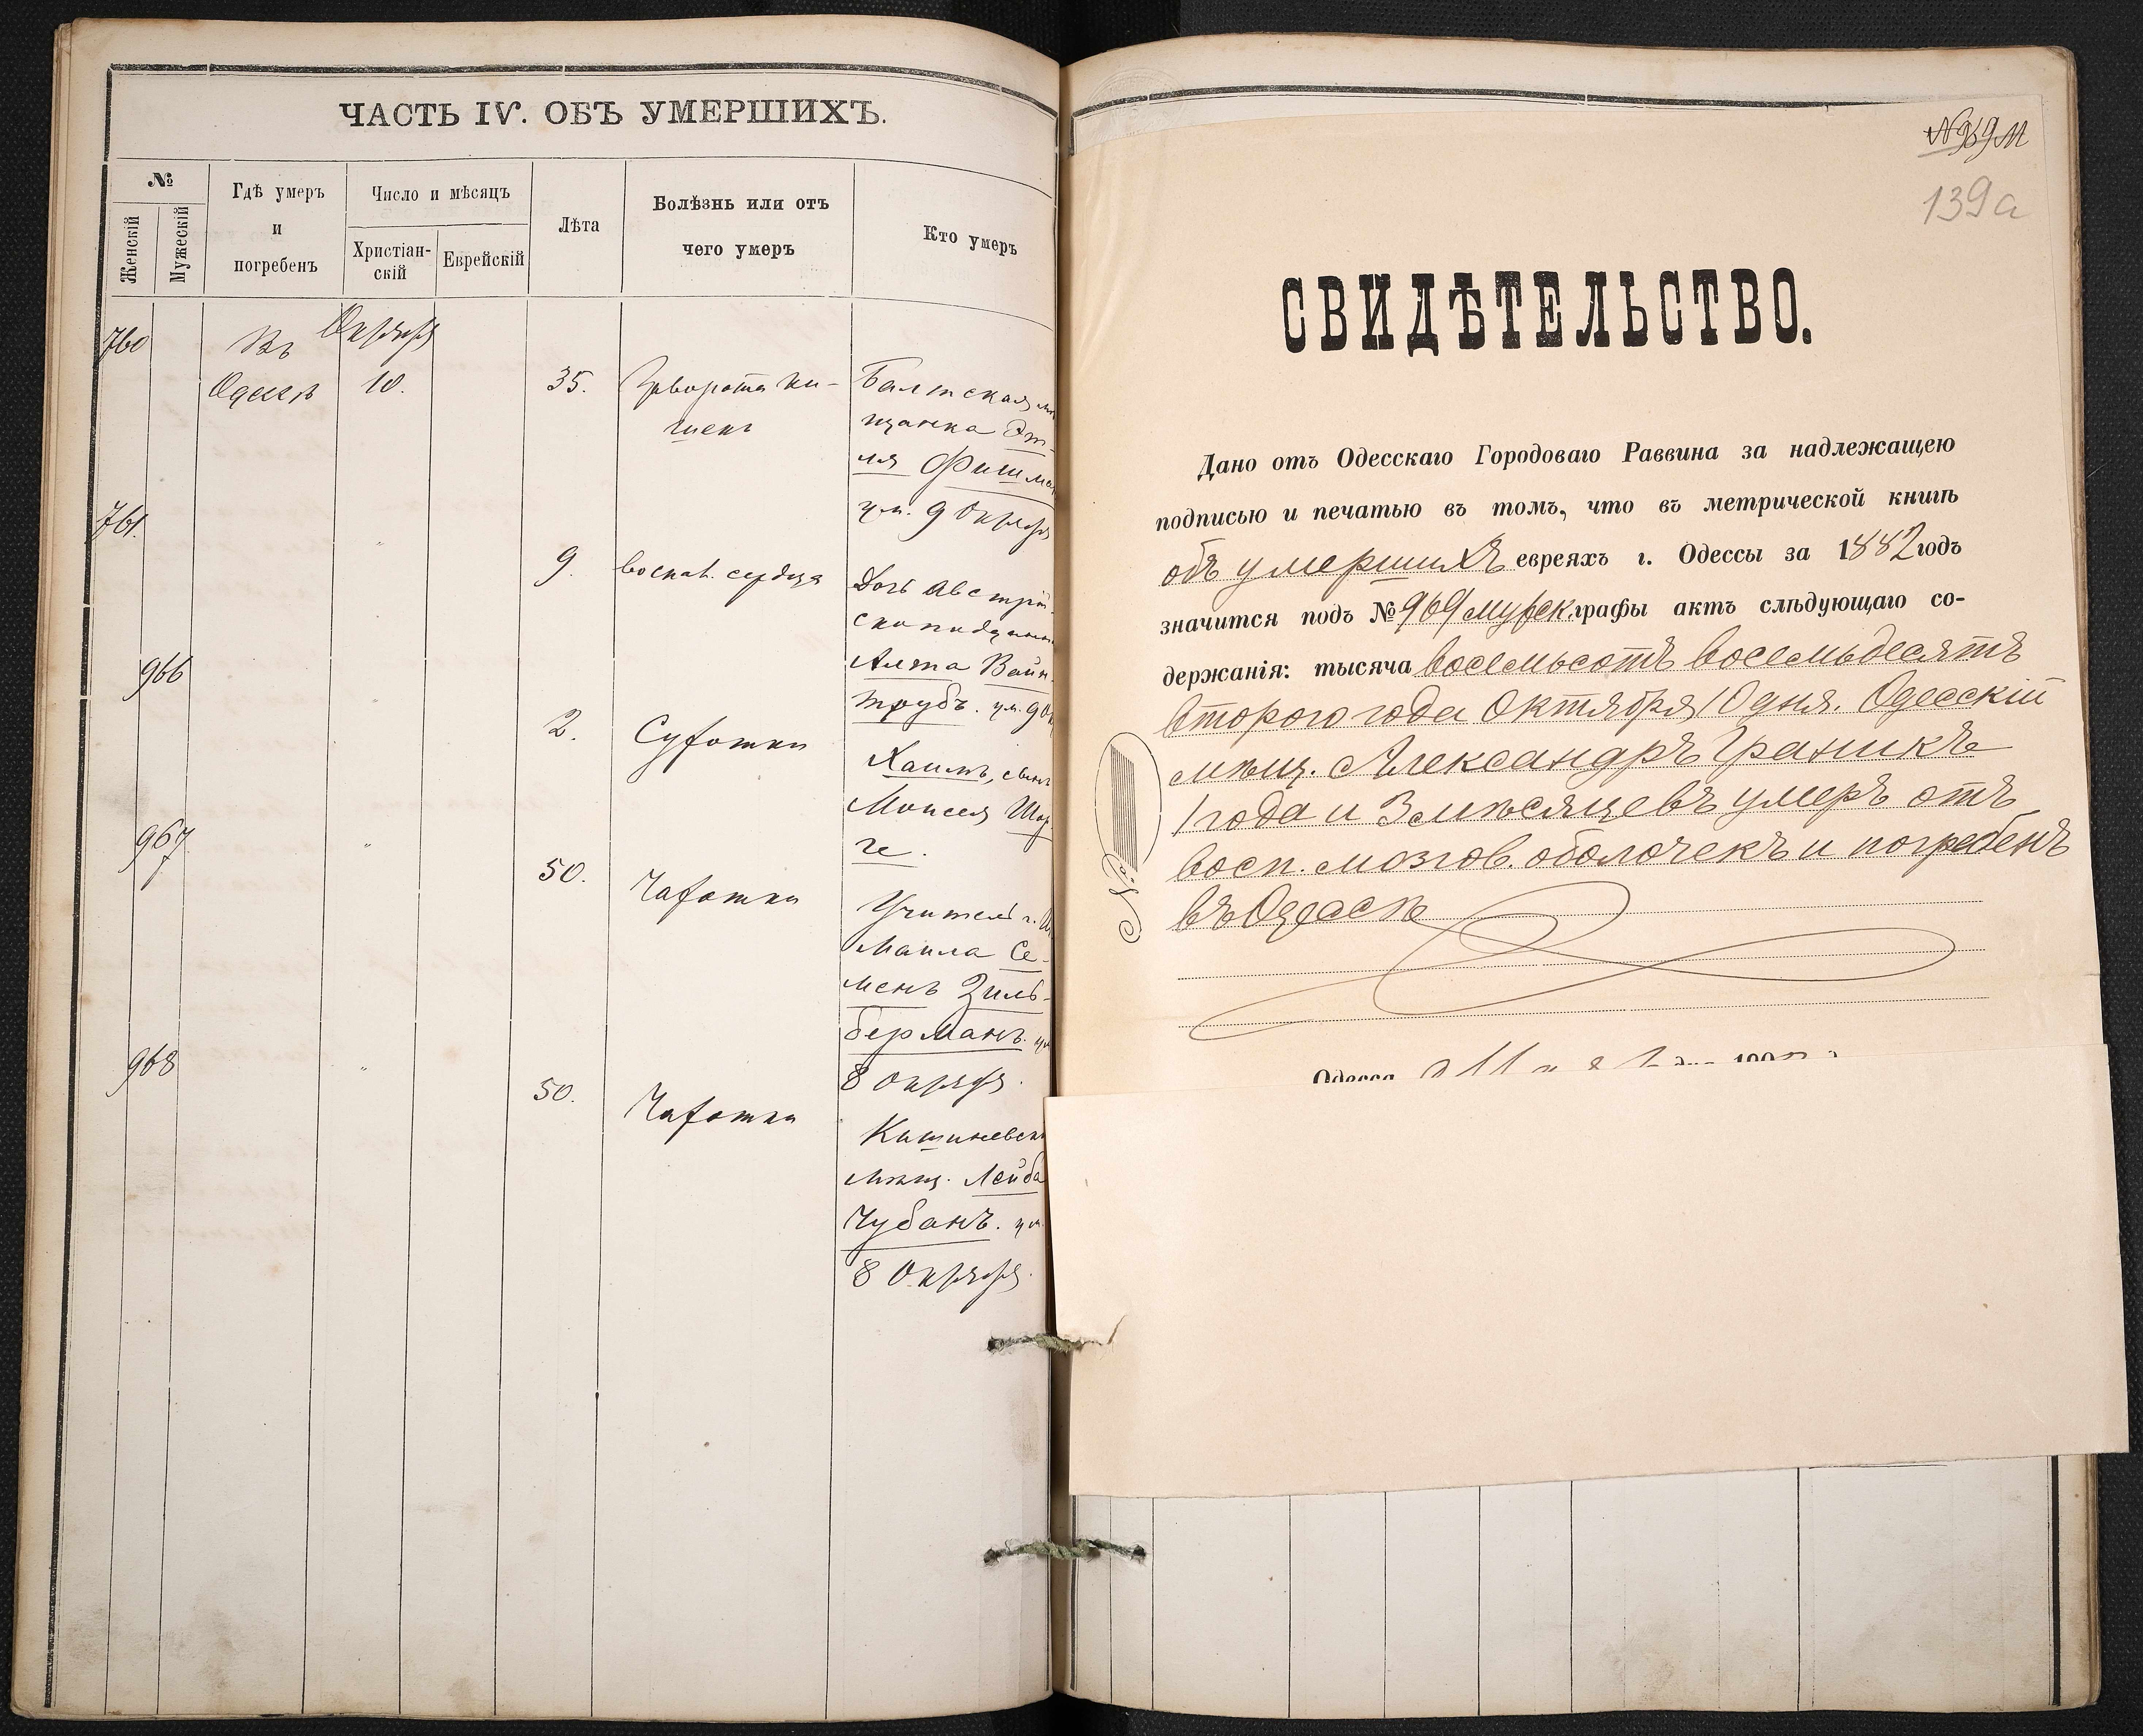 ЧАСТЬ IV. ОБЪ УМЕРШИХЪ.
№
Женскій
Мужескій
Гдѣ умеръ
и
погребенъ
Число и мѣсяцъ
Христіан-
скій
Еврейскій
Лѣта
Болѣзнь или отъ
чего умеръ
Кто умеръ
760
Въ
Одессѣ
Октября
10.
35.
Заворота ки-
шекъ
Балтская мѣ
щанка Эт-
ля Фишма
ум. 9 Октября
761.
"
9.
воспал. сердца
Дочь Австрій-
скоподданн
Алта Вайн-
трубъ. ум. 9 Ок
966
"
2.
Сухотки
Хаимъ, сынъ
Моисея Шор-
ге.
967
"
50.
Чахотки
Учитель г. И
маила Се-
менъ Зиль-
берманъ. ум
8 Октября.
968
"
50.
Чахотки
Кишиневск
мѣщ. Лейба
Чубанъ. ум.
8 Октября.
№ 969 М
139а
СВИДѢТЕЛЬСТВО.
Дано отъ Одесскаго Городоваго Раввина за надлежащею
подписью и печатью въ томъ, что въ метрической книгѣ
объ умершихъ евреяхъ г. Одессы за 1882 годъ
значится подъ № 969 мужск. графы актъ слѣдующаго со-
держанія: тысяча восемьсотъ восемьдесятъ
второго года Октября 10 дня. Одесскій
мѣщ. Александръ Граникъ
1 года и 3 мѣсяцевъ умеръ отъ
восп. мозгов. оболочекъ и погребенъ
въ Одессѣ
№
Одесса